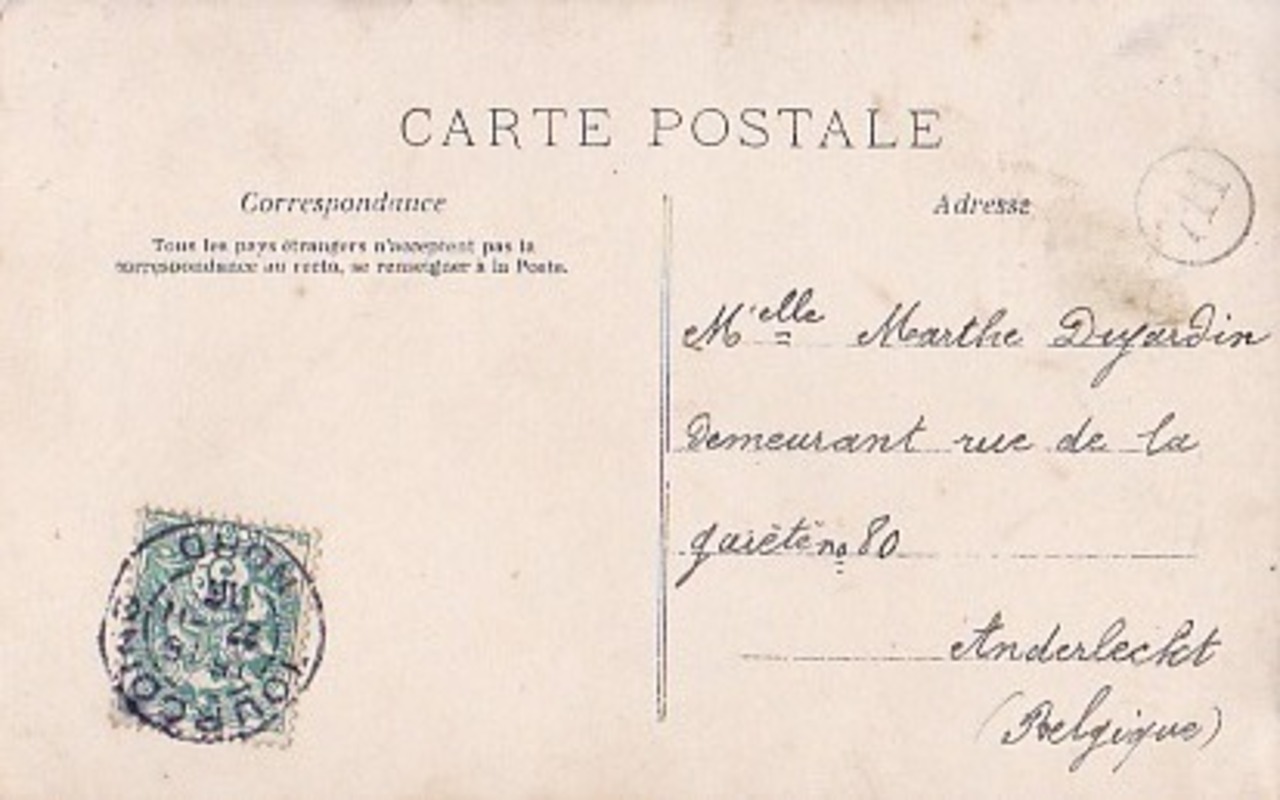 CARTE POSTALE
Correspondance
Tous les pays étrangers n'acceptent pas la
correspondance au recto, se renseigner à la Poste.
Adresse
M'elle Marthe Dujardin
Demeurant rue de la
gaièté no 80
Anderleckt
(Belgique)
TOURCOING
NORD
22